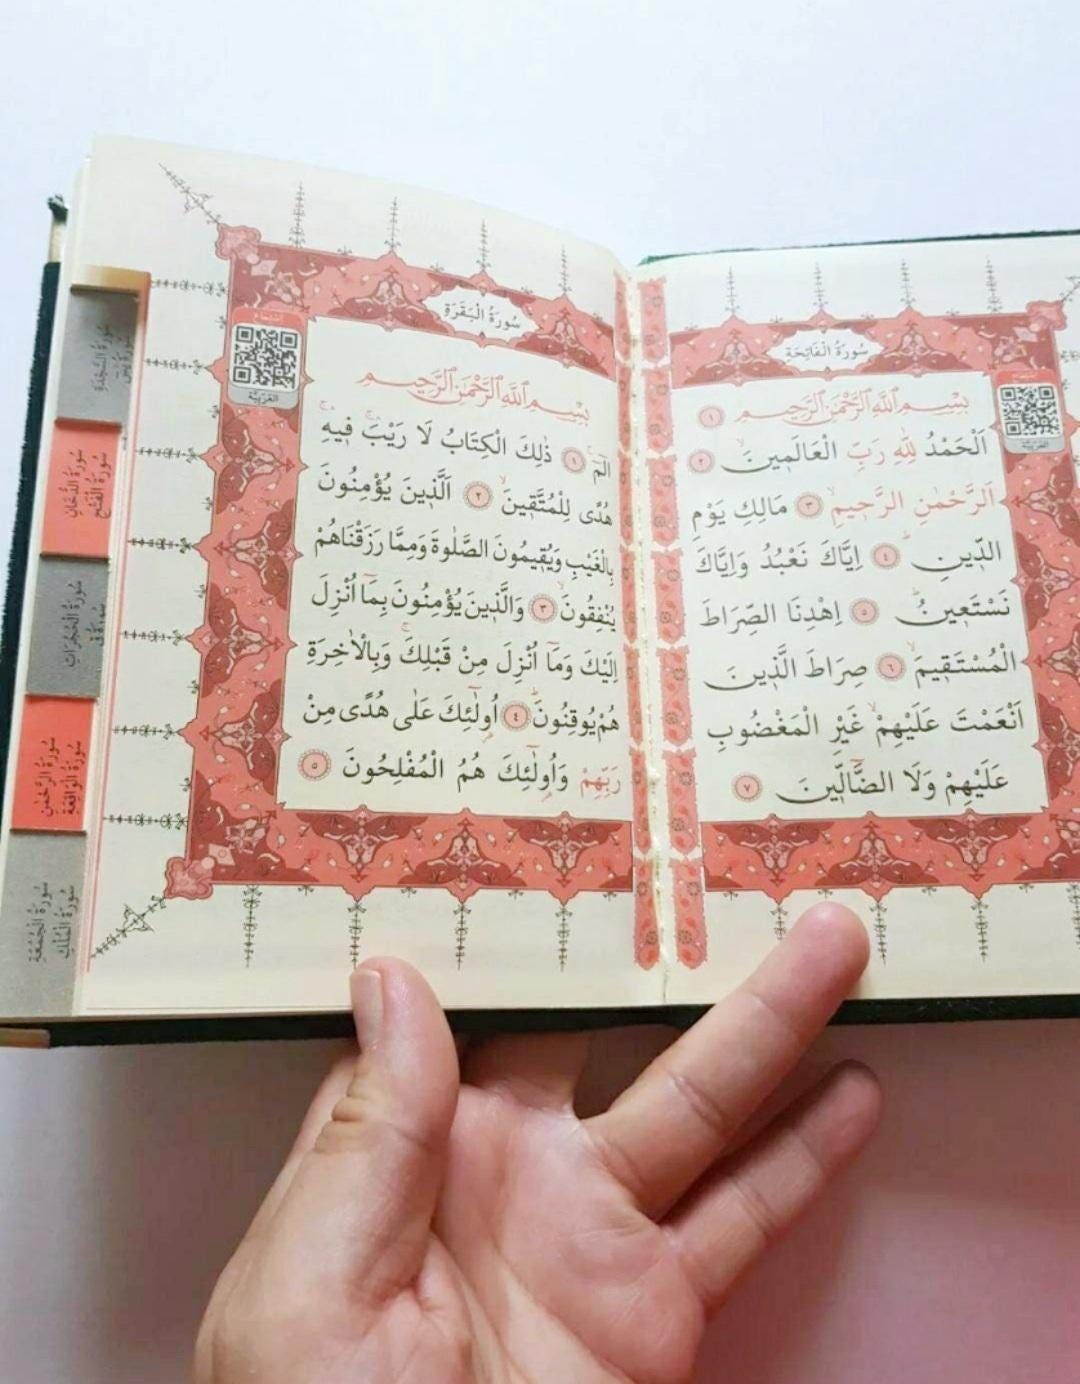 سُورَةُ الْفَاتِحَةِ
بِسْمِ اللّٰهِ الرَّحْمٰنِ الرَّحِيمِ ١
اَلْحَمْدُ لِلّٰهِ رَبِّ الْعَالَمِينَۙ ٢
اَلرَّحْمٰنِ الرَّحِيمِۙ ٣ مَالِكِ يَوْمِ
الدِّينِۜ ٤ اِيَّاكَ نَعْبُدُ وَاِيَّاكَ
نَسْتَعِينُۜ ٥ اِهْدِنَا الصِّرَاطَ
الْمُسْتَقِيمَۙ ٦ صِرَاطَ الَّذِينَ
اَنْعَمْتَ عَلَيْهِمْۙ غَيْرِ الْمَغْضُوبِ
عَلَيْهِمْ وَلَا الضَّٓالِّينَ ٧
العَرَبِيَّة
سُورَةُ الْبَقَرَةِ
بِسْمِ اللّٰهِ الرَّحْمٰنِ الرَّحِيمِ
الٓمٓۚ ١ ذٰلِكَ الْكِتَابُ لَا رَيْبَۚۛ فِيهِۚۛ
هُدًى لِلْمُتَّقِينَۙ ٢ اَلَّذِينَ يُؤْمِنُونَ
بِالْغَيْبِ وَيُقِيمُونَ الصَّلٰوةَ وَمِمَّا رَزَقْنَاهُمْ
يُنْفِقُونَۙ ٣ وَالَّذِينَ يُؤْمِنُونَ بِمَٓا اُنْزِلَ
اِلَيْكَ وَمَٓا اُنْزِلَ مِنْ قَبْلِكَۚ وَبِالْاٰخِرَةِ
هُمْ يُوقِنُونَۜ ٤ اُو۬لٰٓئِكَ عَلٰى هُدًى مِنْ
رَبِّهِمْ وَاُو۬لٰٓئِكَ هُمُ الْمُفْلِحُونَ ٥
استماع
العَرَبِيَّة
سُورَةُ السَّجْدَةِ
سُورَةُ يٰسٓ
سُورَةُ الدُّخَانِ
سُورَةُ الْفَتْحِ
سُورَةُ الْحُجُرَاتِ
سُورَةُ قٓ
سُورَةُ الرَّحْمٰنِ
سُورَةُ الْوَاقِعَةِ
سُورَةُ الْجُمُعَةِ
سُورَةُ الْمُلْكِ